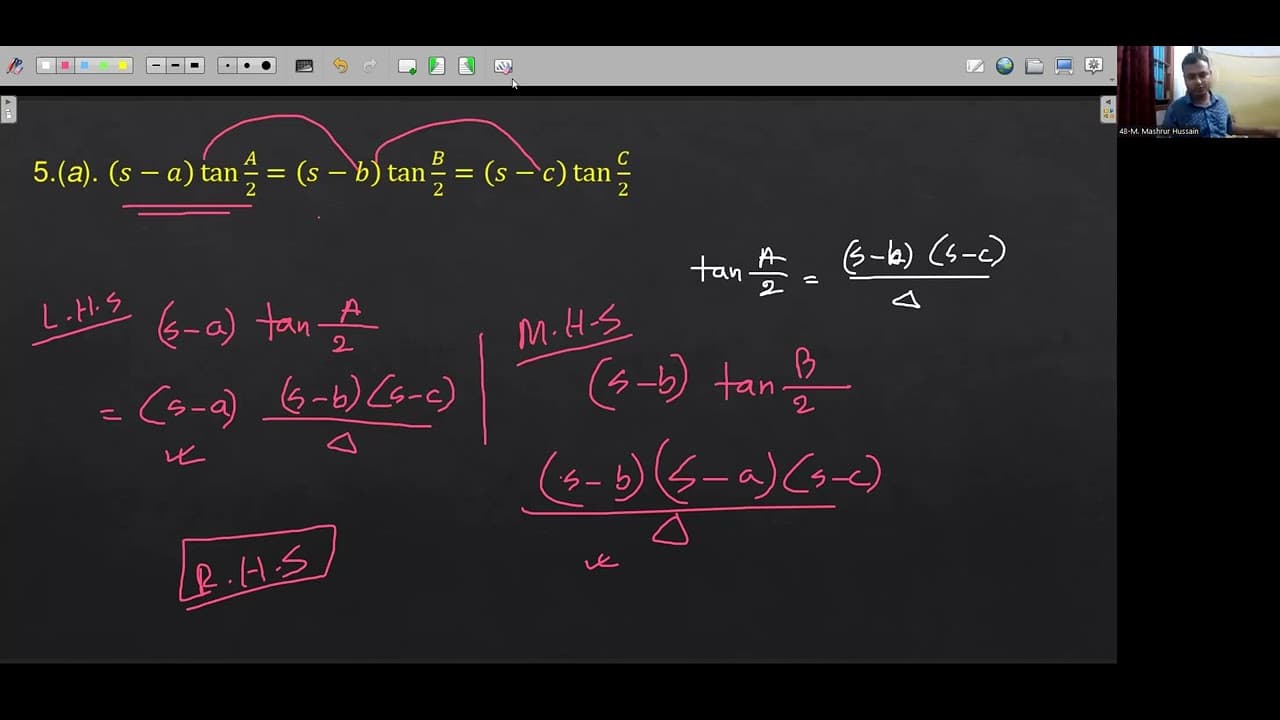 48-M. Mashrur Hussain
5.(a). (s − a) tan A/2 = (s − b) tan B/2 = (s − c) tan C/2
tan A/2 = (s-b) (s-c) / Δ
L.H.S (s-a) tan A/2
= (s-a) (s-b)(s-c) / Δ
M.H.S
(s-b) tan B/2
(s-b)(s-a)(s-c) / Δ
R.H.S